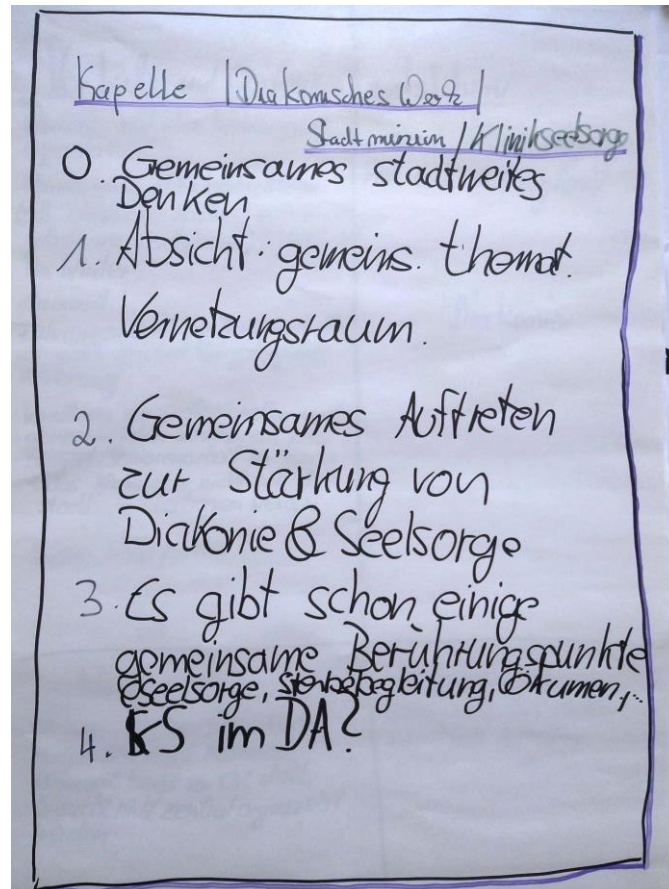 Kapelle | Diakonisches Werk |
Stadtmission / Klinikseelsorge
0. Gemeinsames stadtweites
Denken
1. Absicht: gemeins. themat.
Vernetzungsraum.
2. Gemeinsames Auftreten
zur Stärkung von
Diakonie & Seelsorge
3. Es gibt schon einige
gemeinsame Berührungspunkte
Seelsorge, Sterbebegleitung, Ökumen,...
4. KS im DA?